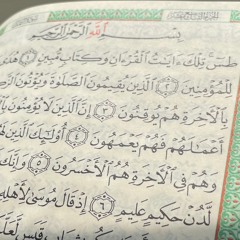 بِسْمِ ٱللَّهِ ٱلرَّحْمَٰنِ ٱلرَّحِيمِ
طسٓ تِلْكَ ءَايَٰتُ ٱلْقُرْءَانِ وَكِتَابٍ مُّبِينٍ ١ هُدًى
لِلْمُؤْمِنِينَ ٢ ٱلَّذِينَ يُقِيمُونَ ٱلصَّلَوٰةَ وَيُؤْتُونَ
بِٱلْءَاخِرَةِ هُمْ يُوقِنُونَ ٣ إِنَّ ٱلَّذِينَ لَا يُؤْمِنُونَ
أَعْمَٰلَهُمْ فَهُمْ يَعْمَهُونَ ٤ أُو۟لَٰٓئِكَ ٱلَّذِينَ
وَهُمْ فِى ٱلْءَاخِرَةِ هُمُ ٱلْأَخْسَرُونَ ٥ وَإِنَّكَ
لَّدُنْ حَكِيمٍ عَلِيمٍ ٦ إِذْ قَالَ مُوسَىٰ لِأَهْلِهِ